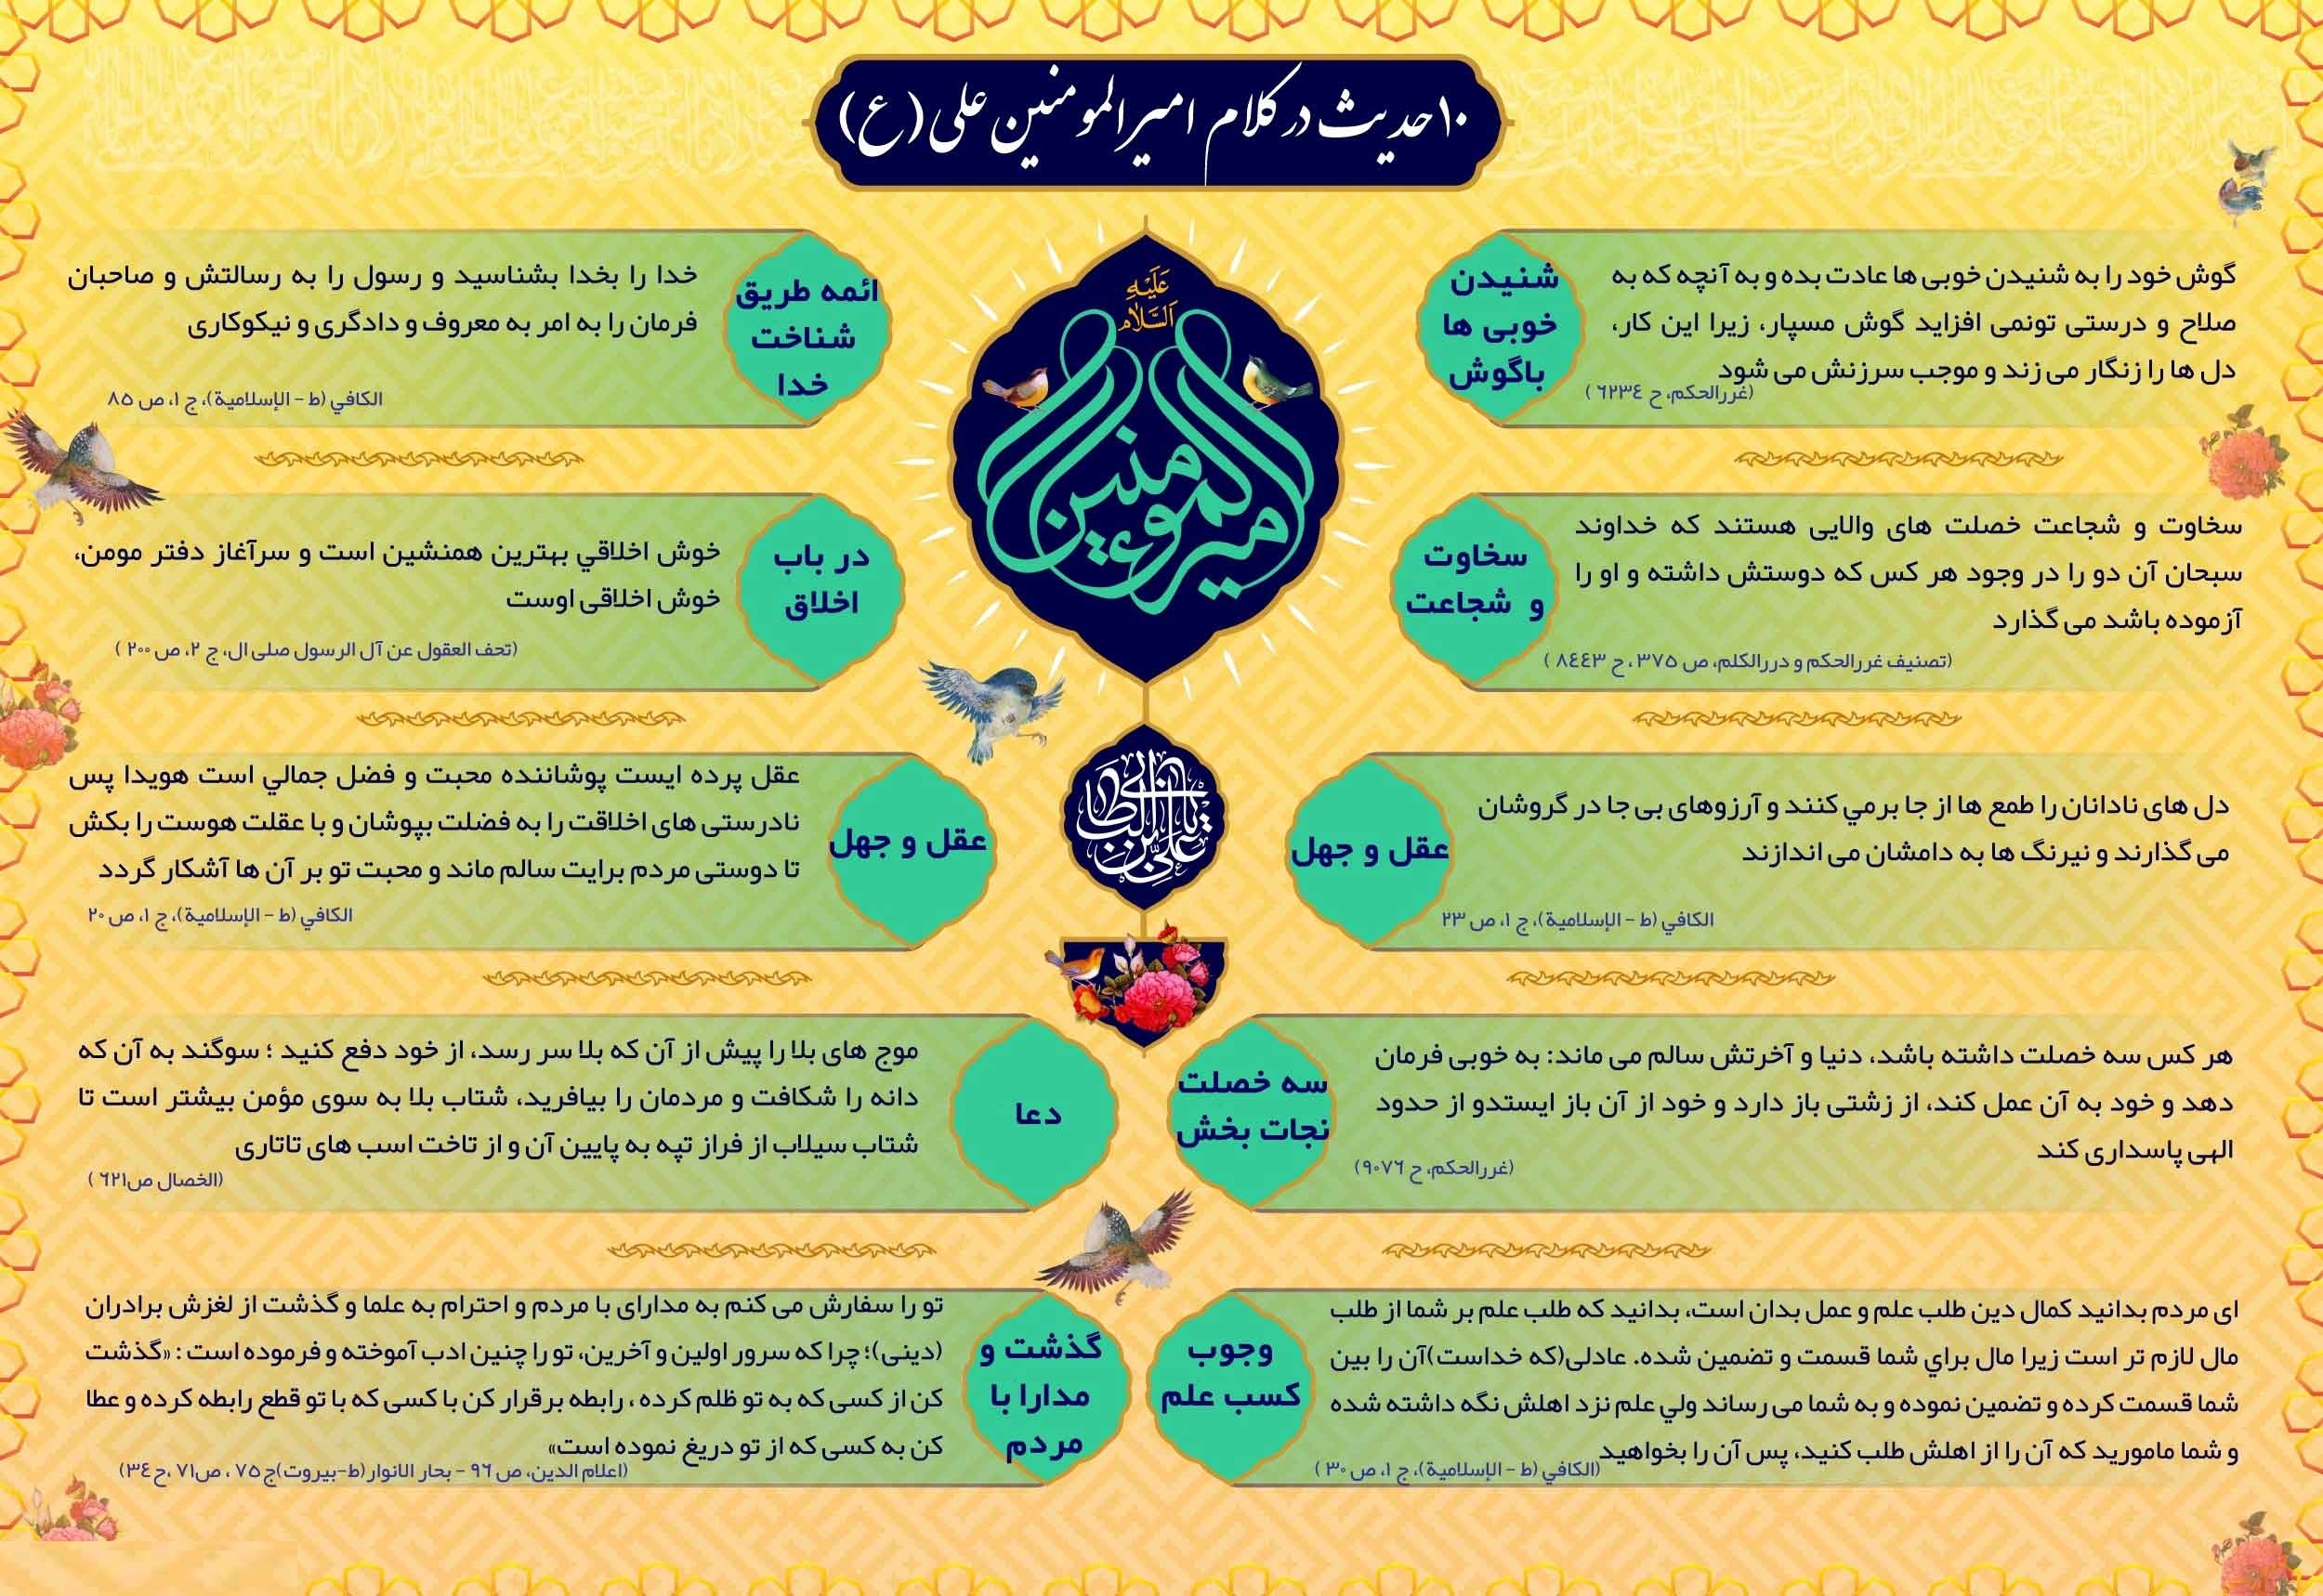 ۱۰ حدیث در کلام امیرالمومنین علی (ع)
شنیدن
خوبی ها
باگوش
گوش خود را به شنیدن خوبی ها عادت بده و به آنچه که به
صلاح و درستی تونمی افزاید گوش مسپار، زیرا این کار،
دل ها را زنگار می زند و موجب سرزنش می شود
(غررالحکم، ح ٦٢٣٤ )
سخاوت
و شجاعت
سخاوت و شجاعت خصلت های والایی هستند که خداوند
سبحان آن دو را در وجود هر کس که دوستش داشته و او را
آزموده باشد می گذارد
(تصنیف غررالحکم و دررالکلم، ص ۳۷۵ ، ح ٨٤٤٣ )
عقل و جهل
دل های نادانان را طمع ها از جا برمي کنند و آرزوهای بی جا در گروشان
می گذارند و نیرنگ ها به دامشان می اندازند
الکافي (ط – الإسلامیة)، ج ۱، ص ۲۳
سه خصلت
نجات بخش
هر کس سه خصلت داشته باشد، دنیا و آخرتش سالم می ماند: به خوبی فرمان
دهد و خود به آن عمل کند، از زشتی باز دارد و خود از آن باز ایستدو از حدود
الهی پاسداری کند
(غررالحکم، ح ۹۰۷٦)
وجوب
کسب علم
ای مردم بدانید کمال دین طلب علم و عمل بدان است، بدانید که طلب علم بر شما از طلب
مال لازم تر است زیرا مال براي شما قسمت و تضمین شده. عادلی(که خداست)آن را بین
شما قسمت کرده و تضمین نموده و به شما می رساند ولي علم نزد اهلش نگه داشته شده
و شما مامورید که آن را از اهلش طلب کنید، پس آن را بخواهید
(الکافي (ط – الإسلامیة)، ج ۱، ص ۳۰ )
عَلَیْهِ
السَّلام
امیرالمومنین
علی بن ابی طالب
ائمه طریق
شناخت
خدا
خدا را بخدا بشناسید و رسول را به رسالتش و صاحبان
فرمان را به امر به معروف و دادگری و نیکوکاری
الکافي (ط – الإسلامیة)، ج ۱، ص ۸۵
در باب
اخلاق
خوش اخلاقي بهترین همنشین است و سرآغاز دفتر مومن،
خوش اخلاقی اوست
(تحف العقول عن آل الرسول صلی ال، ج ۲، ص ۲۰۰ )
عقل و جهل
عقل پرده ایست پوشاننده محبت و فضل جمالي است هویدا پس
نادرستی های اخلاقت را به فضلت بپوشان و با عقلت هوست را بکش
تا دوستی مردم برایت سالم ماند و محبت تو بر آن ها آشکار گردد
الکافي (ط – الإسلامیة)، ج ۱، ص ۲۰
دعا
موج های بلا را پیش از آن که بلا سر رسد، از خود دفع کنید ؛ سوگند به آن که
دانه را شکافت و مردمان را بیافرید، شتاب بلا به سوی مؤمن بیشتر است تا
شتاب سیلاب از فراز تپه به پایین آن و از تاخت اسب های تاتاری
(الخصال ص٦٢١ )
گذشت و
مدارا با
مردم
تو را سفارش می کنم به مدارای با مردم و احترام به علما و گذشت از لغزش برادران
(دینی)؛ چرا که سرور اولین و آخرین، تو را چنین ادب آموخته و فرموده است : «گذشت
کن از کسی که به تو ظلم کرده ، رابطه برقرار کن با کسی که با تو قطع رابطه کرده و عطا
کن به کسی که از تو دریغ نموده است»
(اعلام الدین، ص ۹٦ – بحار الانوار(ط-بیروت)ج۷۵ ، ص۷۱ ،ح۳٤)